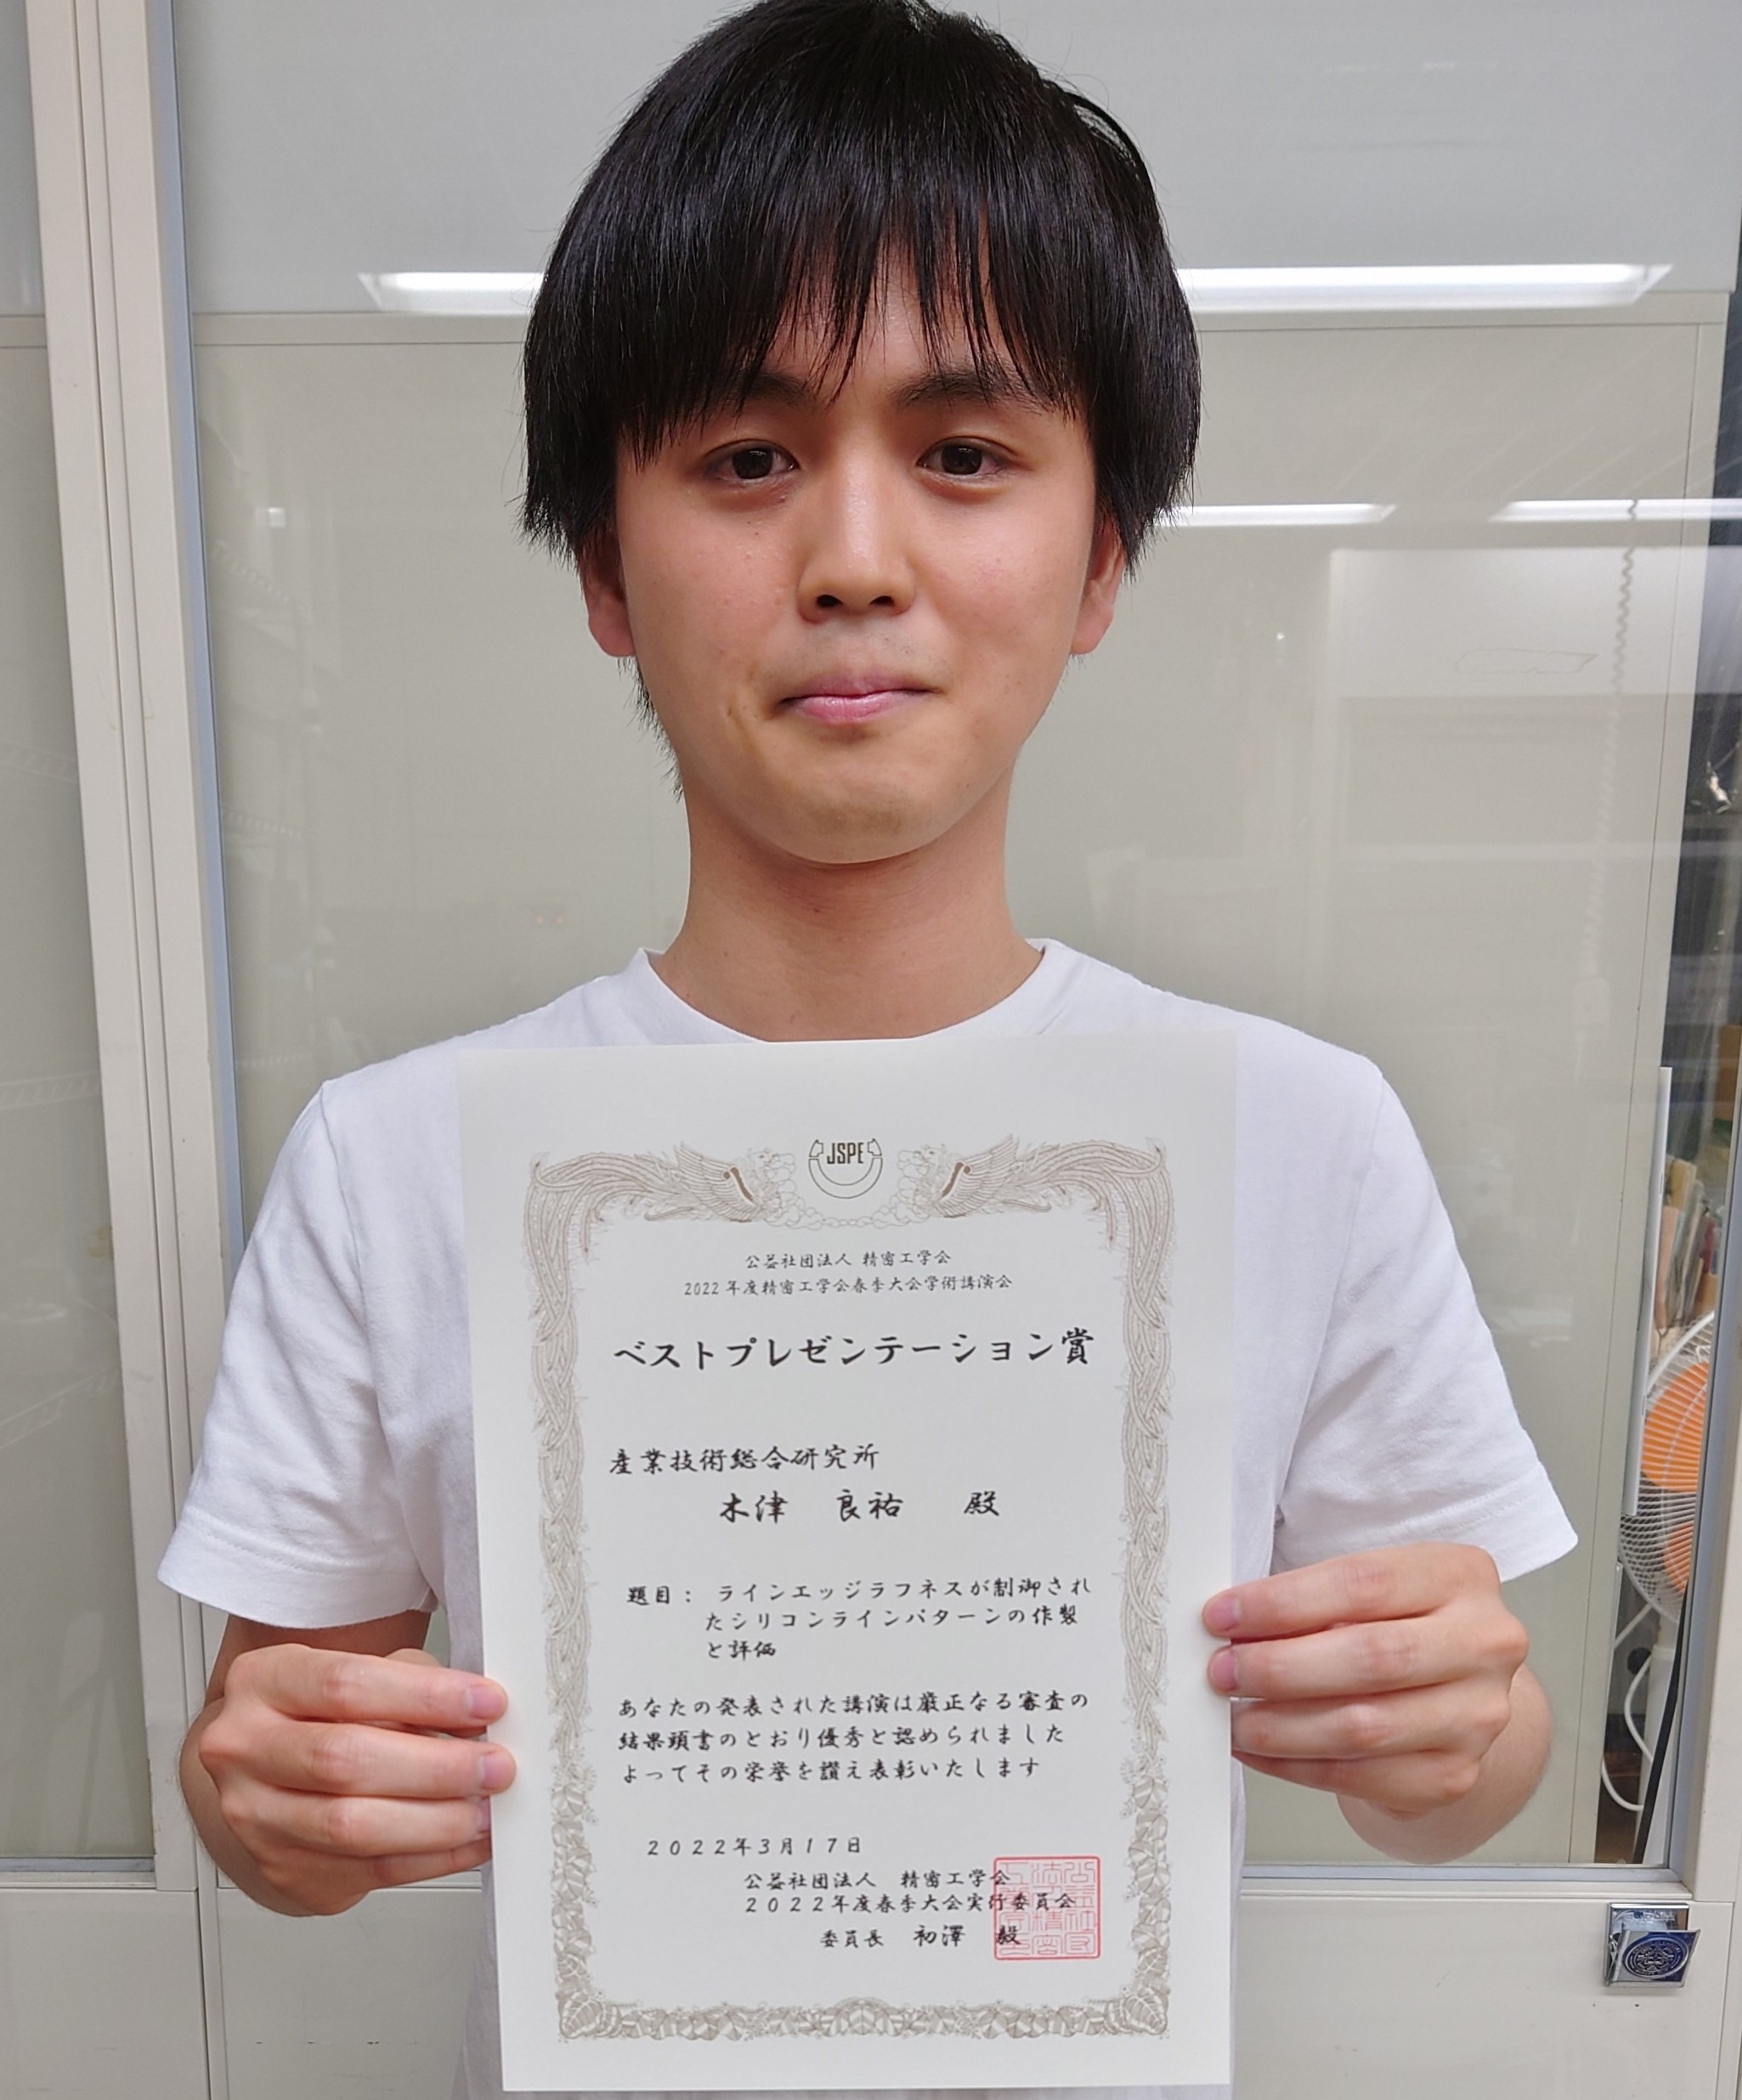 JSPE
公益社団法人 精密工学会
2022年度精密工学会春季大会学術講演会
ベストプレゼンテーション賞
産業技術総合研究所
木津 良祐 殿
題目： ラインエッジラフネスが制御され
たシリコンラインパターンの作製
と評価
あなたの発表された講演は厳正なる審査の
結果頭書のとおり優秀と認められました
よってその栄誉を讃え表彰いたします
2022年3月17日
公益社団法人 精密工学会
2022年度春季大会実行委員会
委員長 初澤 毅